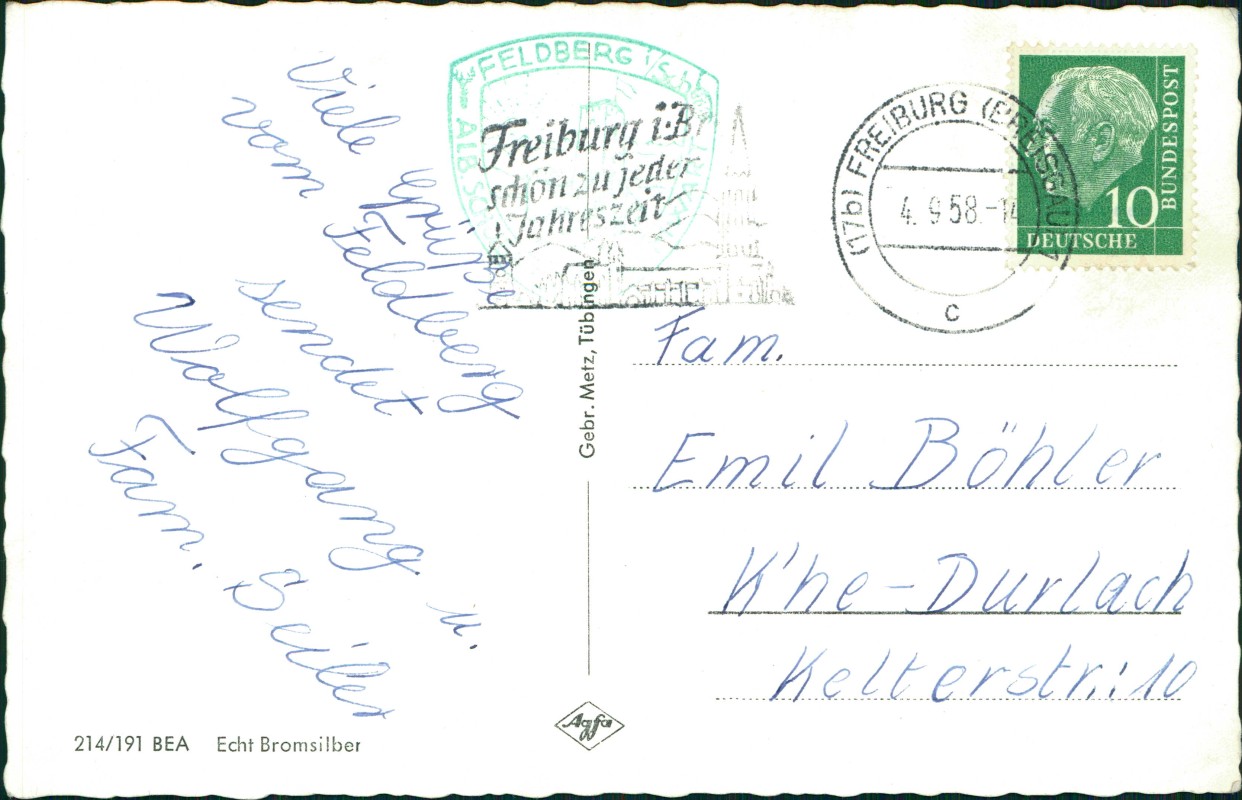 Viele Grüße
vom Feldberg
sendet
Wolfgang u.
Fam. Seiler
FELDBERG
Freiburg i. Br.
schön zu jeder
Jahreszeit
(17b) FREIBURG (BREISGAU)
4. 9 58.-14
c
BUNDESPOST
10
DEUTSCHE
Gebr. Metz, Tübingen
Fam.
Emil Böhler
K'he-Durlach
Kelterstr.: 10
Agfa
214/191 BEA Echt Bromsilber